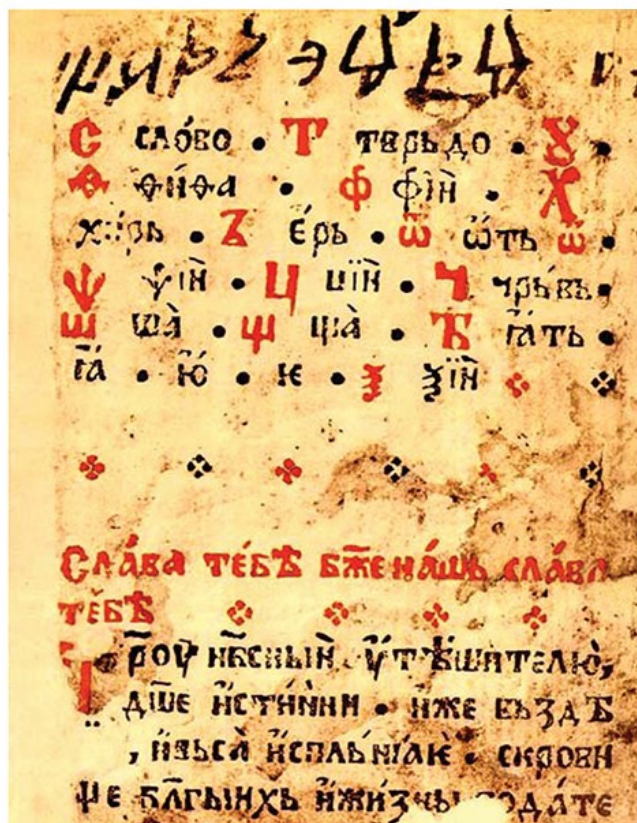 С слѻ́во • Т тврьдо • Ꙋ •
Ѳ ѳи́ѳа • Ф фі́и҆ • Х
хи́рь • Ъ є́рь • Ѿ ѿть ѿ •
Ѱ ѱі́и҆ • Ц ці́и҆ • Ч чрь́вь •
Ш ша̀ • Щ ща̀ • Ѣ ꙗ҆ть •
ꙗ҆́ • ю҆́ • ѥ • Ѯ ѯі́и҆
Сла́ва те́бѣ бж҃е на́шь сла́ва
те́бѣ
Ц р҃оу нб҃сныи҆ ѹ҆тѣшителю̀,
дш҃е и҆сти́нни • и҆же въздѣ
, и҆вьса̀ и҆спль́нꙗѥ • скрови
ще бл҃гыихь и҆жи́зны подате